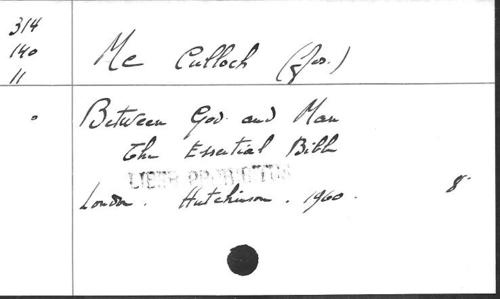 314
140
11
Mc Culloch (Jos.)
Between God and Man
The Essential Bible
London. Hutchinson. 1960. 8°